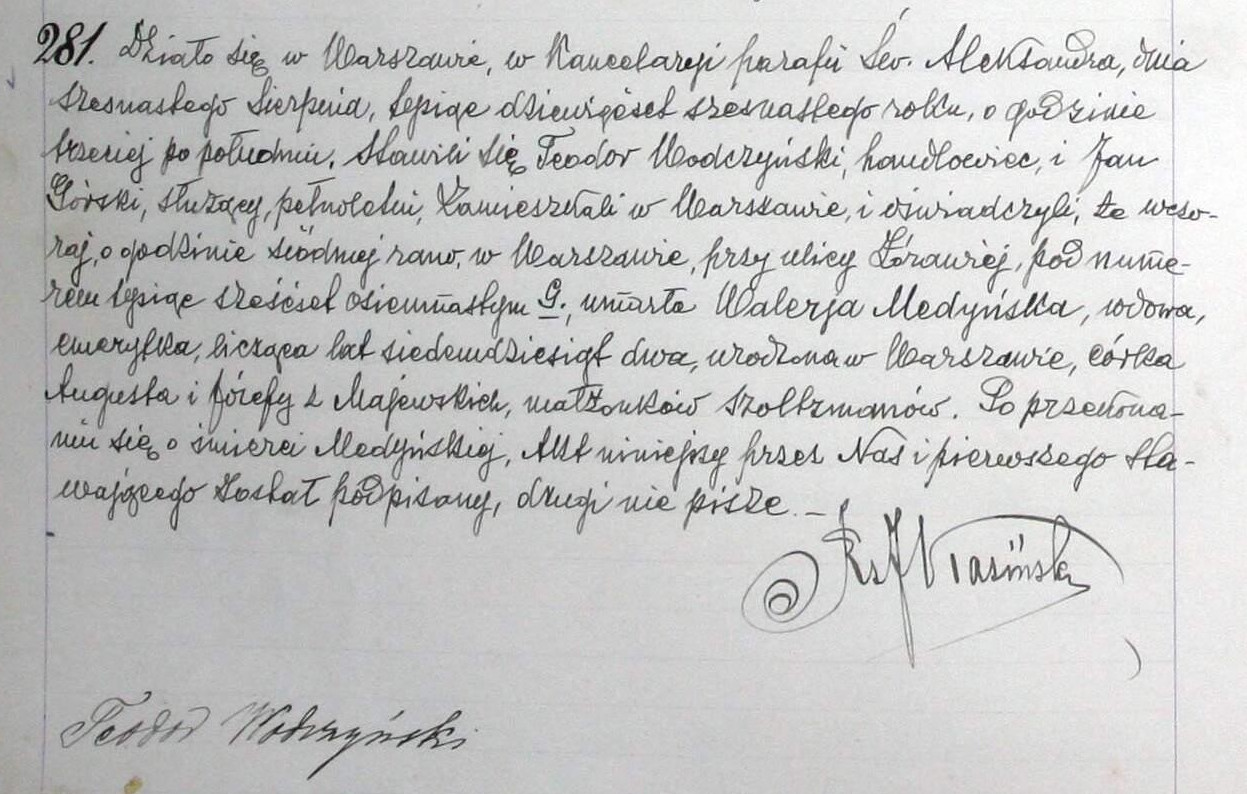 281. Działo się w Warszawie, w Kancelaryi parafii Św. Aleksandra, dnia
szesnastego Sierpnia, tysiąc dziewięćset szesnastego roku, o godzinie
trzeciej po południu. Stawili się Teodor Wodczyński, handlowiec, i Jan
Górski, służący, pełnoletni, zamieszkali w Warszawie, i oświadczyli, że wczo-
raj, o godzinie siódmej rano, w Warszawie, przy ulicy Żórawiej, pod nume-
rem tysiąc sześćset osiemnastym G., umarła Walerja Medyńska, wdowa,
emerytka, licząca lat siedemdziesiąt dwa, urodzona w Warszawie, córka
Augusta i Józefy z Majewskich, małżonków Szoltzmanów. Po przekona-
niu się o śmierci Medyńskiej, Akt niniejszy przez Nas i pierwszego sta-
wającego został podpisany, drugi nie pisze. –
Ks J
Teodor Wodczyński